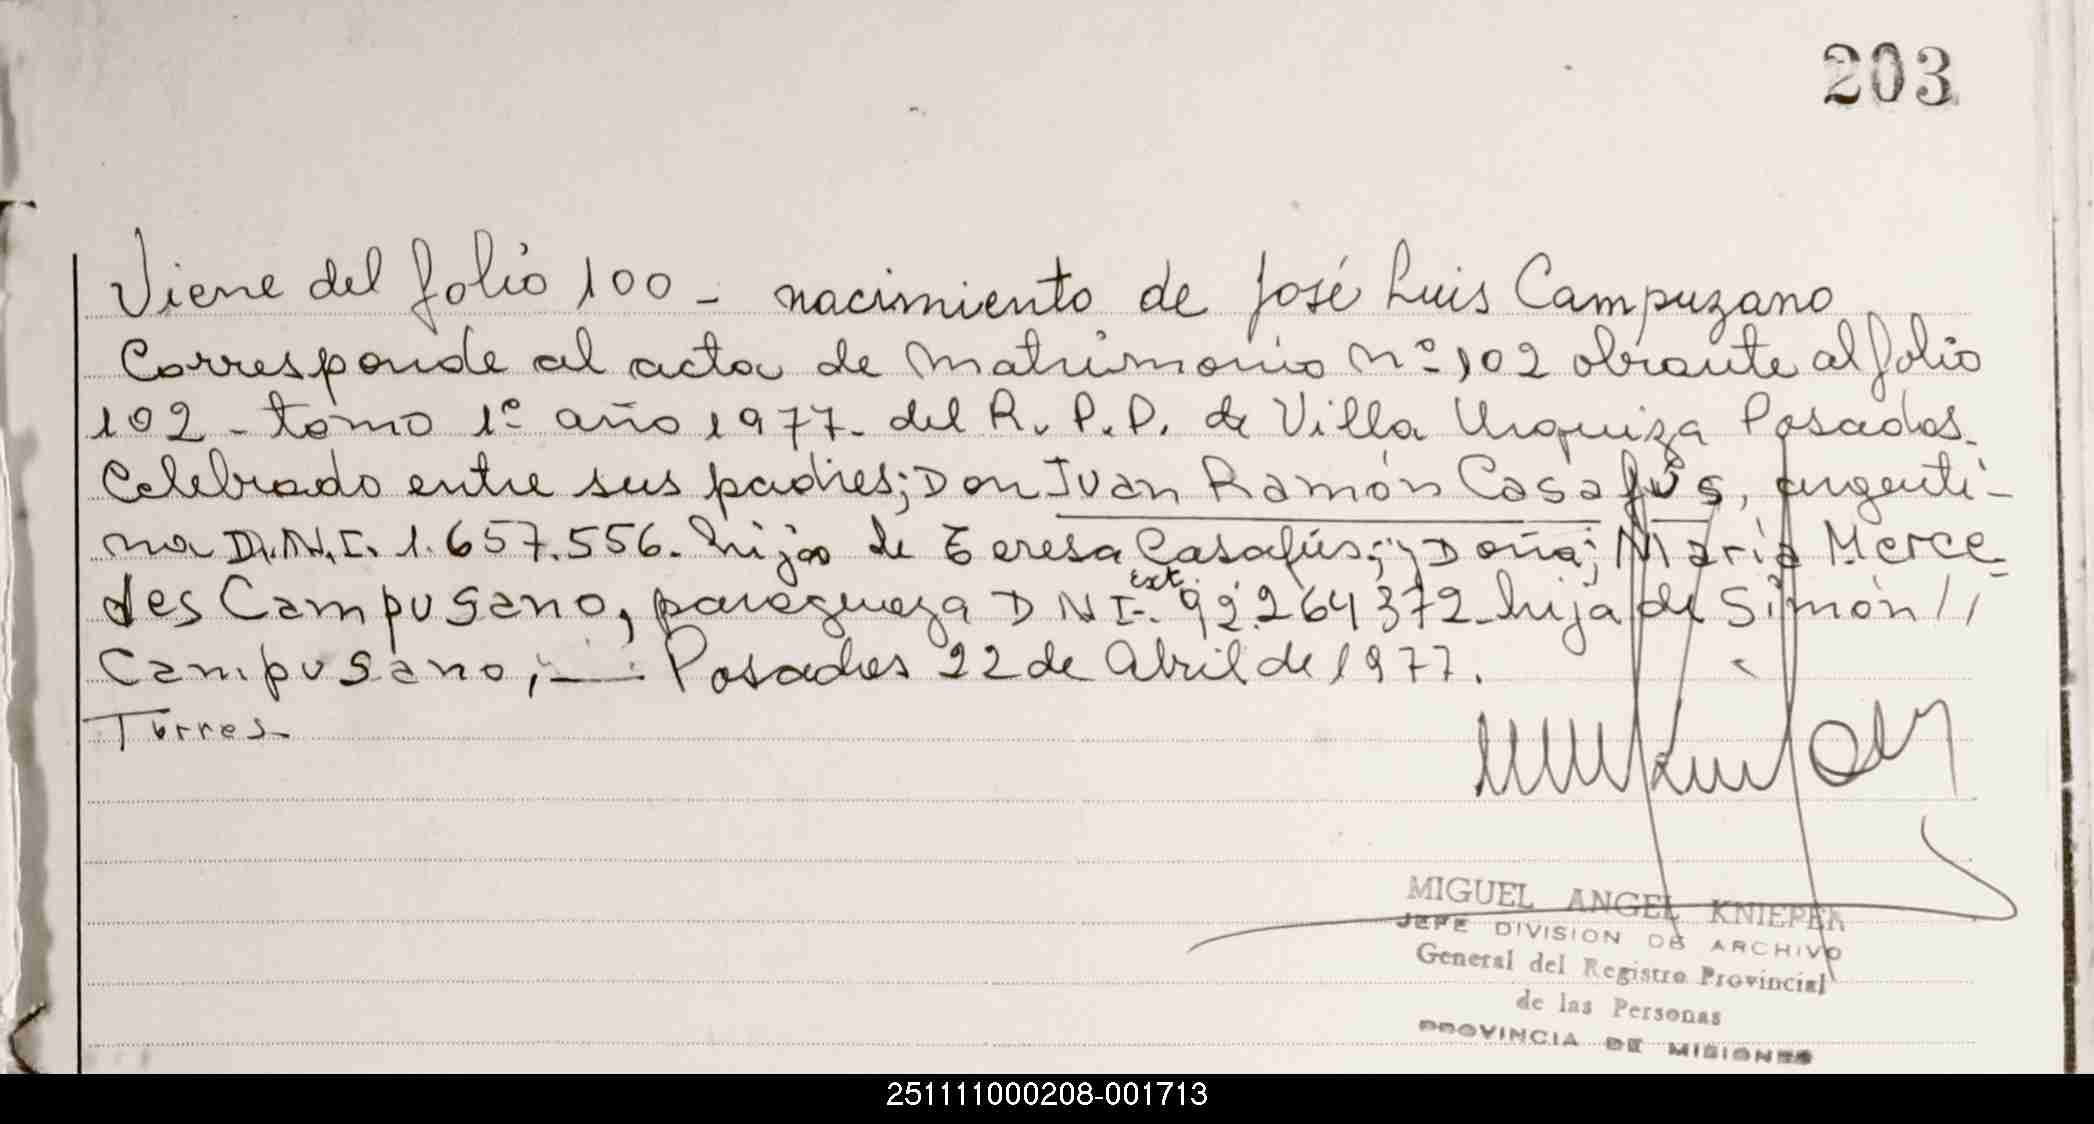 203
Viene del folio 100 - nacimiento de José Luis Campuzano
Corresponde al acta de matrimonio nº 102 obrante al folio
102 - tomo 1º año 1977. del R. P. P. de Villa Urquiza Posadas.
Celebrado entre sus padres; Don Juan Ramón Casafús, argenti-
no D.N.I. 1.657.556. hijo de Teresa Casafús; y Doña; María Merce-
des Campusano, paraguaya D N I. Ext. 92.264372 - hija de Simón //
Campusano, — Posadas 22 de Abril de 1977.
Torres
MIGUEL ANGEL KNIEPER
JEFE DIVISION DE ARCHIVO
General del Registro Provincial
de las Personas
PROVINCIA DE MISIONES
251111000208-001713